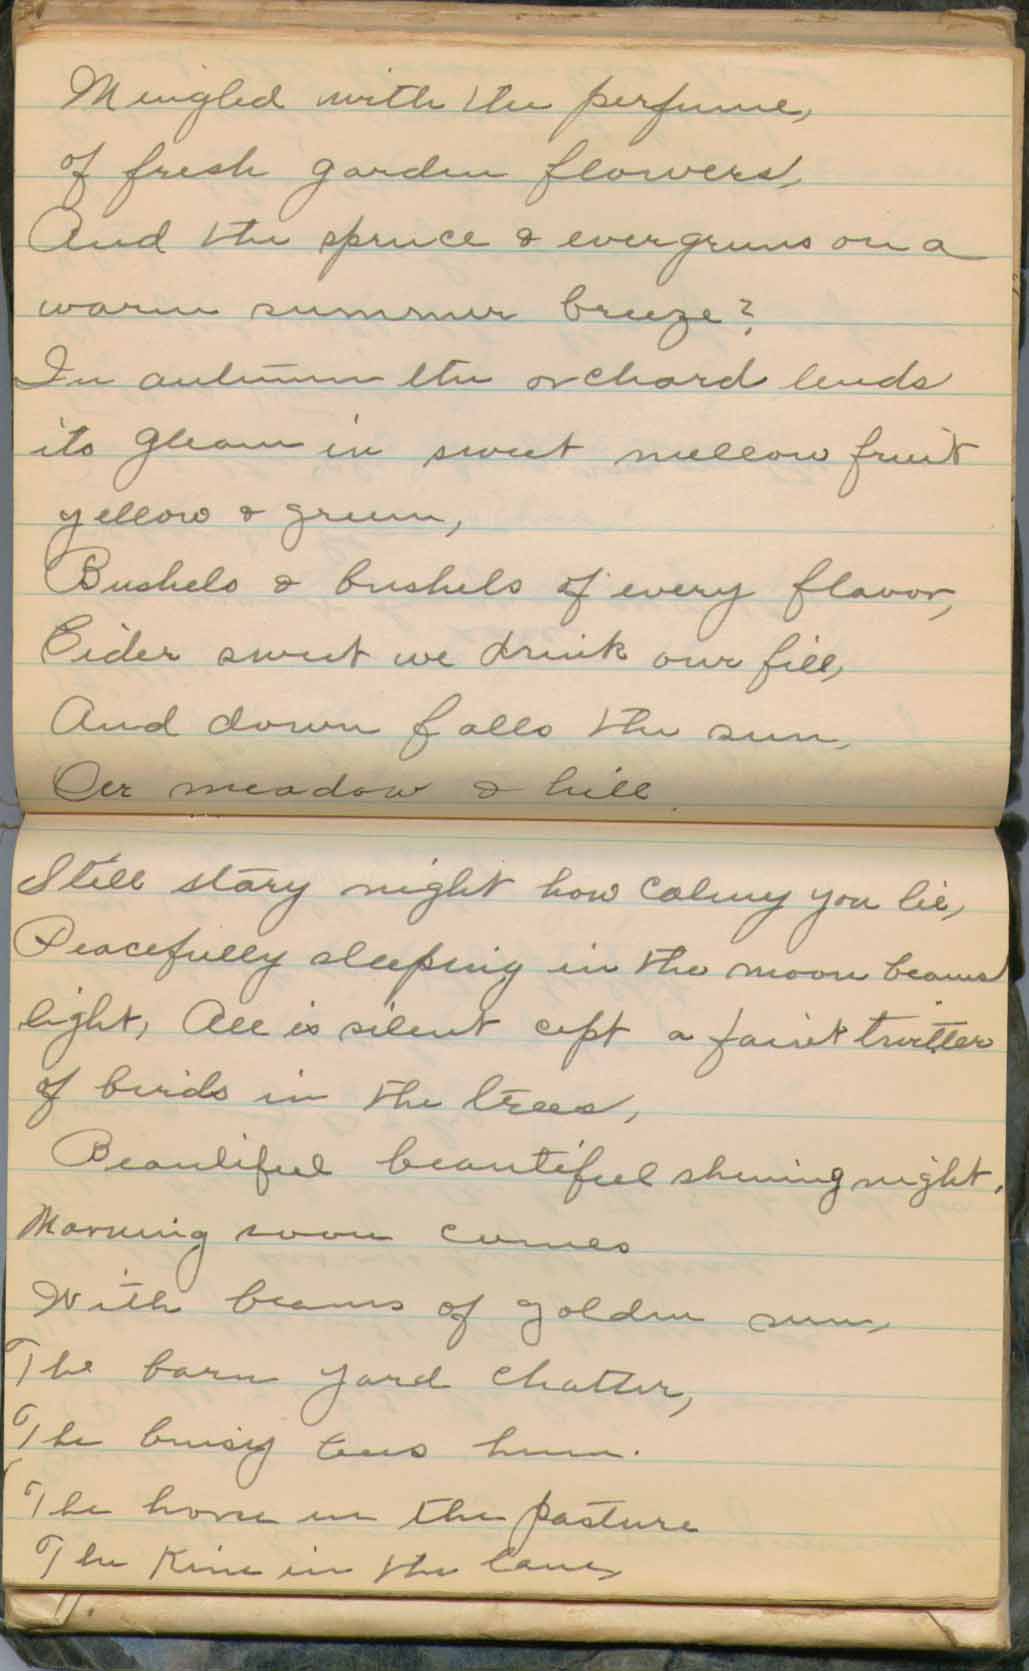 Mingled with the perfume,
of fresh garden flowers,
And the spruce & evergreens on a
warm summer breeze?
In autumn the orchard lends
its gleam in sweet mellow fruit
yellow & green,
Bushels & bushels of every flavor,
Cider sweet we drink our fill,
And down falls the sun,
Oer meadow & hill
Still stary night how calmy you lie,
Peacefully sleeping in the moon beams
light, All is silent cept a faint twitter
of birds in the trees,
Beautiful beautiful shining night.
Morning soon comes
With beams of golden sun,
The barn yard chatter,
The buisy bees hum.
The horse in the pasture
The Kine in the lane,